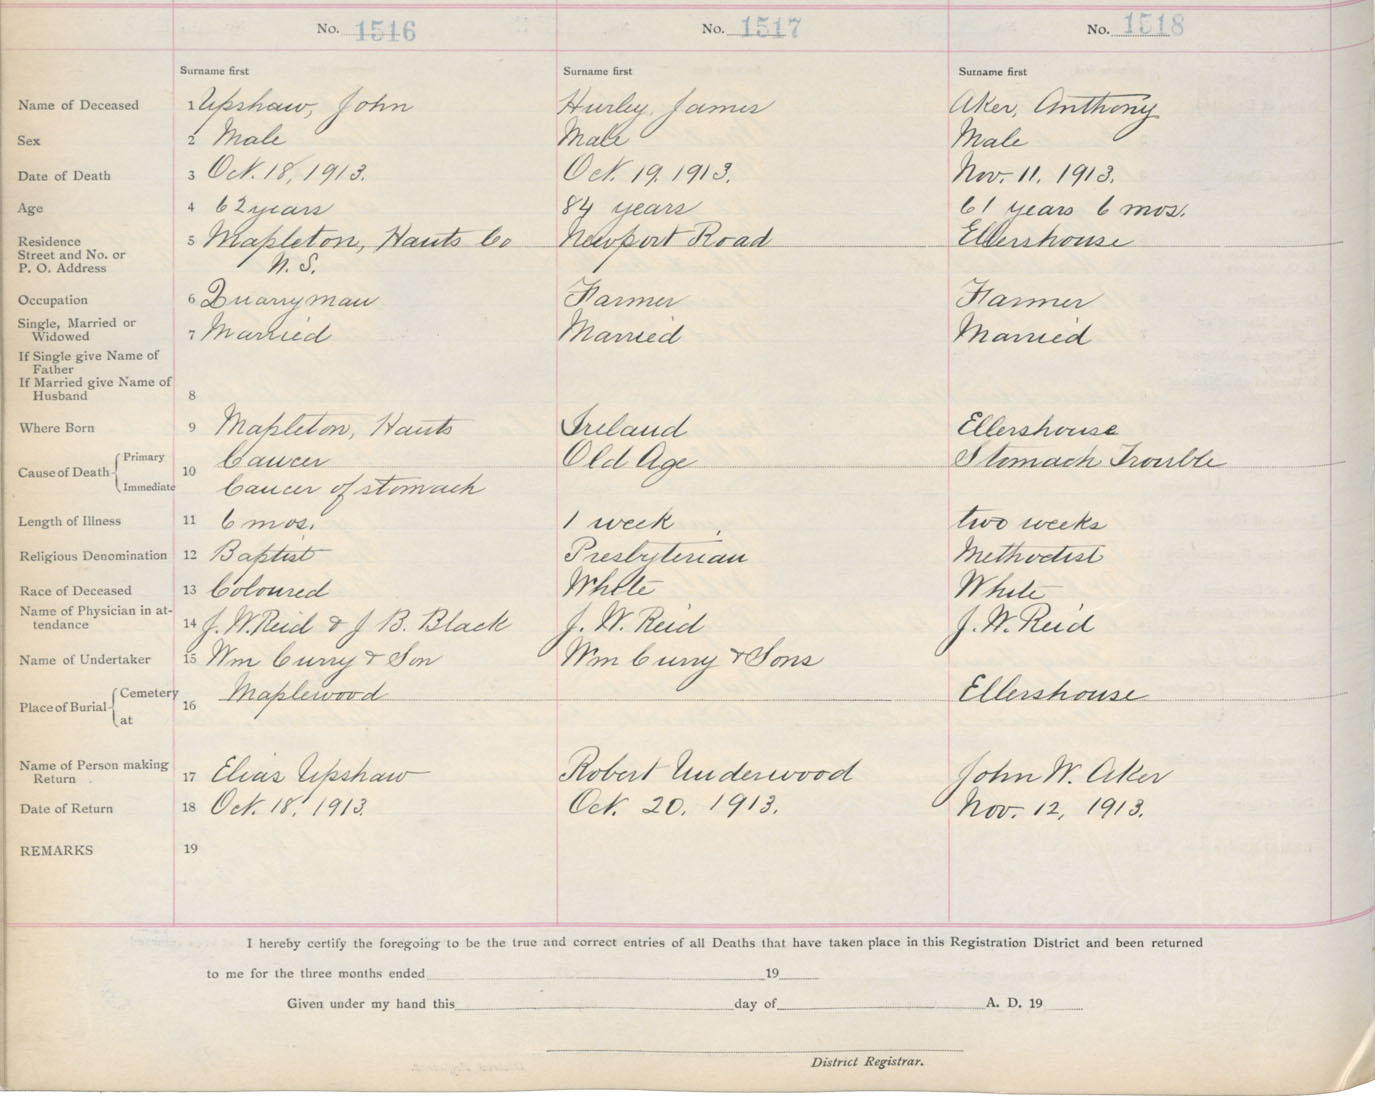 No. 1516 No. 1517 No. 1518
Surname first Surname first Surname first
Name of Deceased 1 Upshaw, John Hurley, James Aker, Anthony
Sex 2 Male Male Male
Date of Death 3 Oct. 18, 1913. Oct. 19. 1913. Nov. 11. 1913.
Age 4 62 years 84 years 61 years 6 mos.
Residence 5 Mapleton, Hants Co Newport Road Ellershouse
Street and No. or N. S.
P. O. Address
Occupation 6 Quarryman Farmer Farmer
Single, Married or
Widowed 7 Married Married Married
If Single give Name of
Father
If Married give Name of
Husband 8
Where Born 9 Mapleton, Hants Ireland Ellershouse
Primary Cancer Old Age Stomach Trouble
Cause of Death 10
Immediate Cancer of stomach
Length of Illness 11 6 mos. 1 week two weeks
Religious Denomination 12 Baptist Presbyterian Methodist
Race of Deceased 13 Coloured White White
Name of Physician in at-
tendance 14 J. W. Reid & J B. Black J. W. Reid J. W. Reid
Name of Undertaker 15 Wm Curry & Son Wm Curry & Sons
Cemetery Maplewood Ellershouse
Place of Burial 16
at
Name of Person making
Return 17 Elias Upshaw Robert Underwood John W. Aker
Date of Return 18 Oct. 18, 1913. Oct. 20. 1913. Nov. 12, 1913.
REMARKS 19
I hereby certify the foregoing to be the true and correct entries of all Deaths that have taken place in this Registration District and been returned
to me for the three months ended 19
Given under my hand this day of A. D. 19
District Registrar.